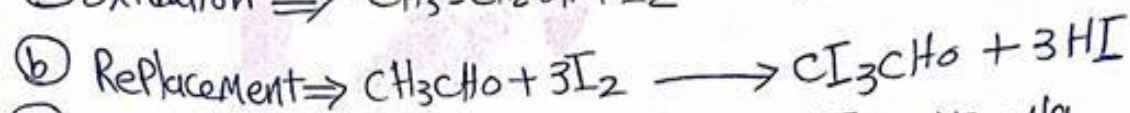 ⓑ RePlacement⇒ CH₃CHO + 3I₂ ⟶ CI₃CHO + 3HI